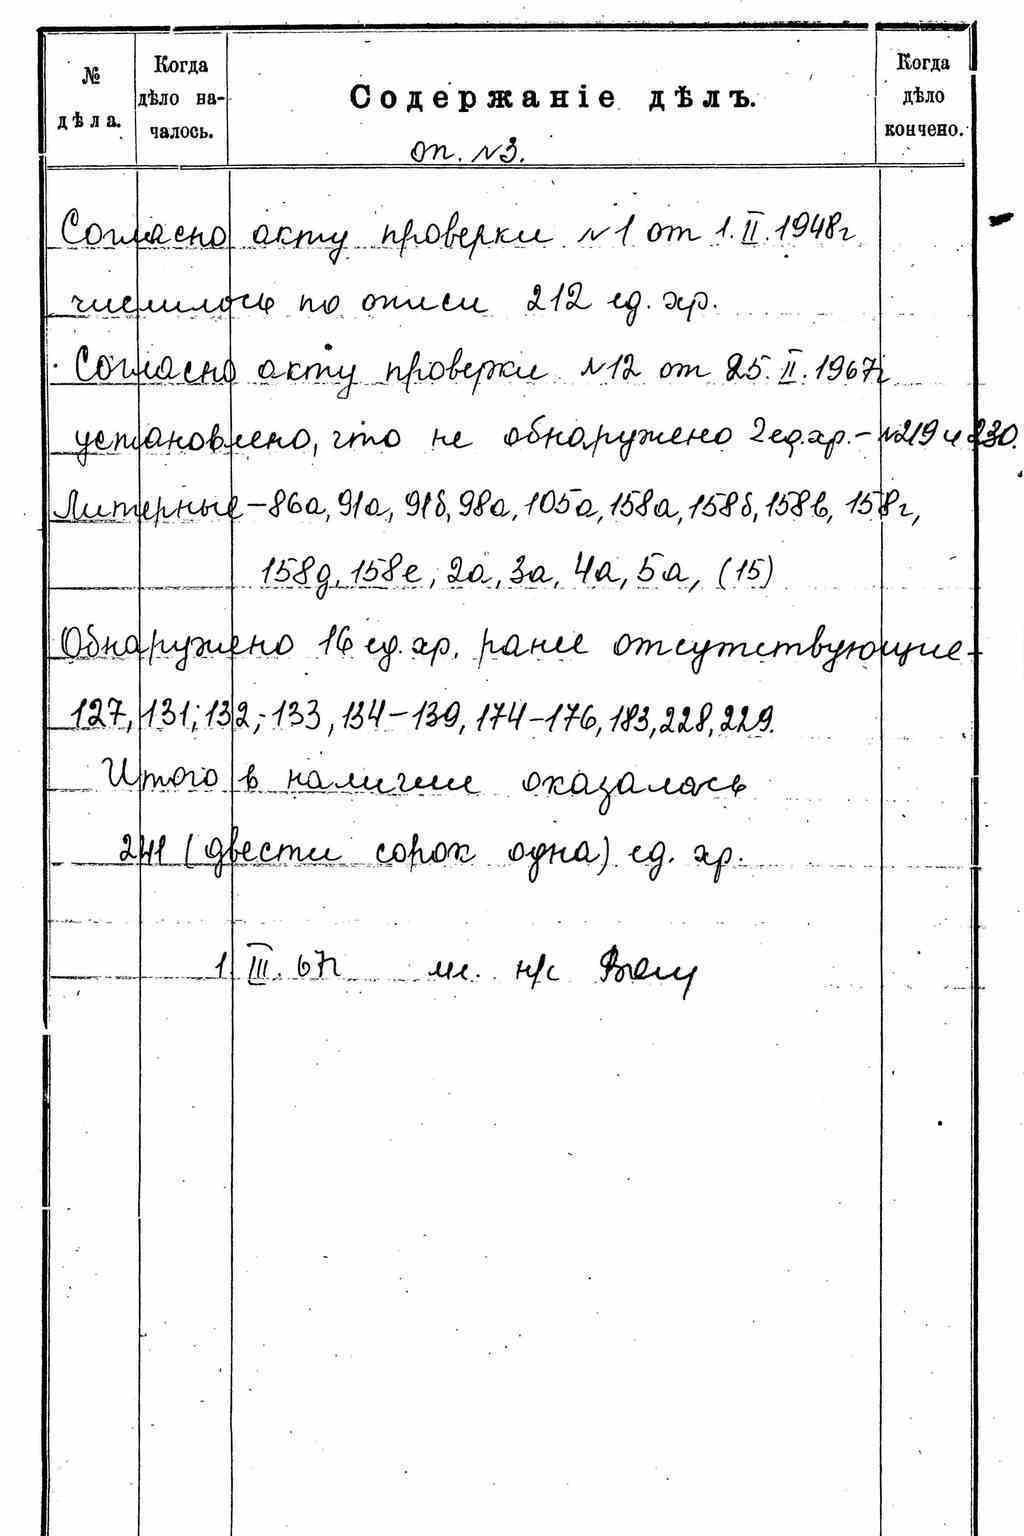 № дѣла.
Когда дѣло на-чалось.
Содержаніе дѣлъ.
Когда дѣло кончено.
оп. №3.
Согласно акту проверки №1 от 1.II.1948г
числилось по описи 212 ед. хр.
Согласно акту проверки №12 от 25.II.1967г
установлено, что не обнаружено 2 ед. хр. - №219 и 230.
Литерные - 86а, 91а, 91б, 98а, 105а, 158а, 158б, 158в, 158г,
158д, 158е, 2а, 3а, 4а, 5а, (15)
Обнаружено 16 ед. хр. ранее отсутствующие -
127, 131; 132, - 133, 134-139, 174-176, 183, 228, 229.
Итого в наличии оказалось
241 (двести сорок одна) ед. хр.
1 III. 67г мл. н/с